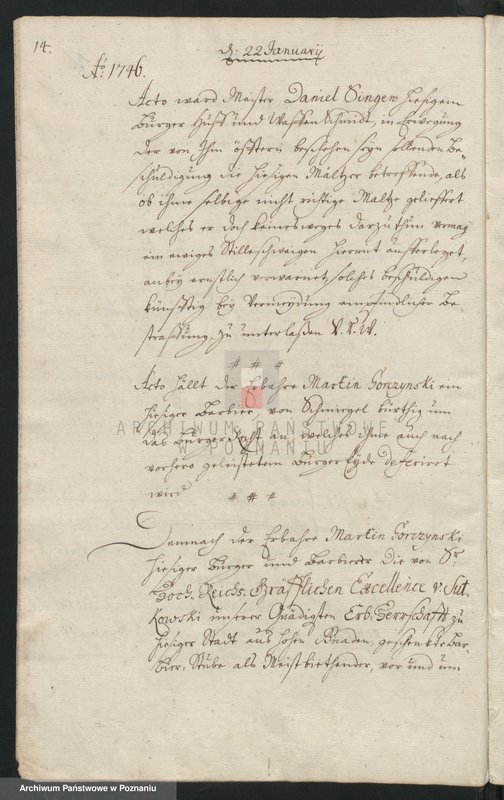 14.
d: 22 January
Ao 1746.
Acto ward Meister Daniel Singer hiesigem
Bürger Huff und Waffen Schmidt, in Erwegung
der von Ihm öffters beschehen seyn sollenden Be-
schuldigung die hiesigen Mältzer betreffende, als
ob ihme selbige nicht richtige Maltze geliefert
welches er doch keinesweges darzuthun vermag
ein ewiges Stilleschweigen hiermit aufferleget,
anbey ernstlich verwarnet solches beschuldigen
künfftig bey Vermeydung empfindlicher Be-
straffung zu unterlaßen V. R. W.
# # #
Acto hällt der Erbahre Martin Gorczynski ein
hiesiger Barbier, von Schmiegel bürthig um
das Bürger Recht an, welches ihme auch nach
vorhero geleistetem Bürger Eyde deferiret
wird
# # #
Demnach der Erbahre Martin Gorczynski
hiesiger Bürger und Barbierer die von Sr.
Hoch-Reichs-Gräfflichen Excellence v. Sul-
kowski unserer Gnädigsten Erb-Herrschafft zu
hiesiger Stadt aus hohen Gnaden, geschenckte Bar-
bier-Stube als Meistbiethender, vor und um
ARCHIWUM PAŃSTWOWE
W POZNANIU
Archiwum Państwowe w Poznaniu